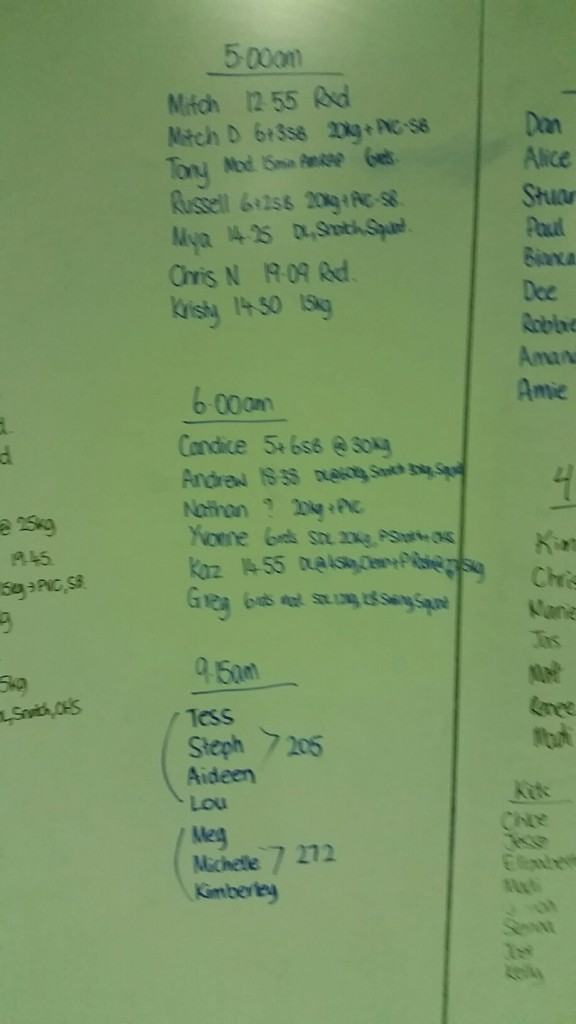 5:00am
Mitch 12.55 Rxd
Mitch D 6+3SB 20kg + PVC-SB
Tony Mod. 15min AMRAP 6rds.
Russell 6+2SB 20kg + PVC-SB.
Mya 14.25 DL, Snatch, Squat.
Chris N 19.09 Rxd.
Kristy 14.50 15kg
6:00am
Candice 5+6SB @ 30kg
Andrew 18.38 DL@60kg, Snatch 30kg, Squat
Nathan ? 20kg + PVC
Yvonne 6rds SDL 20kg, P.Snatch+OHS
Kaz 14.55 DL@45kg, Clean+P
Greg 6rds mod. SDL 12kg, KB Swing, Squat
9.15am
Tess
Steph 205
Aideen
Lou
Meg
Michelle 272
Kimberley
@ 25kg
19.45.
15kg + PVC, SB.
5kg
Snatch, OHS
Dan
Alice
Stuar
Paul
Bianca
Dee
Robbie
Aman
Amie
4
Kim
Chris
Marie
Jas
Matt
Renee
Madi
Kids
Chloe
Jesse
Elizabeth
Madi
Sienna
Joel
Kelly